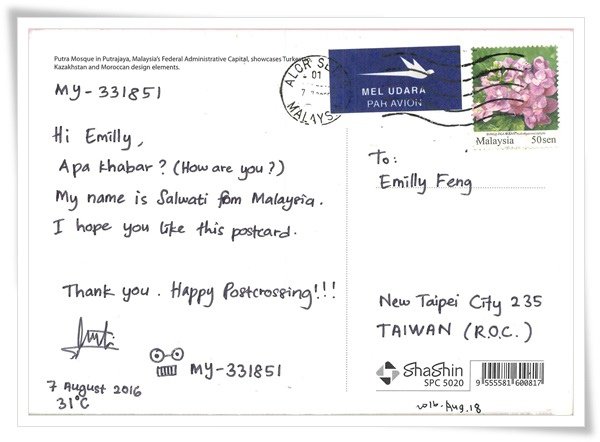 Putra Mosque in Putrajaya, Malaysia's Federal Administrative Capital, showcases
Kazakhstan and Moroccan design elements.
MY-331851
Hi Emilly,
Apa khabar? (How are you?)
My name is Salwati from Malaysia.
I hope you like this postcard.
Thank you. Happy Postcrossing!!!
MY-331851
7 August 2016
31°C
ALOR
01
MALAYSIA
MEL UDARA
PAR AVION
Malaysia 50sen
To:
Emilly Feng
New Taipei City 235
TAIWAN (R.O.C.)
ShaShin
SPC 5020
9 555581 600817
2016. Aug. 18